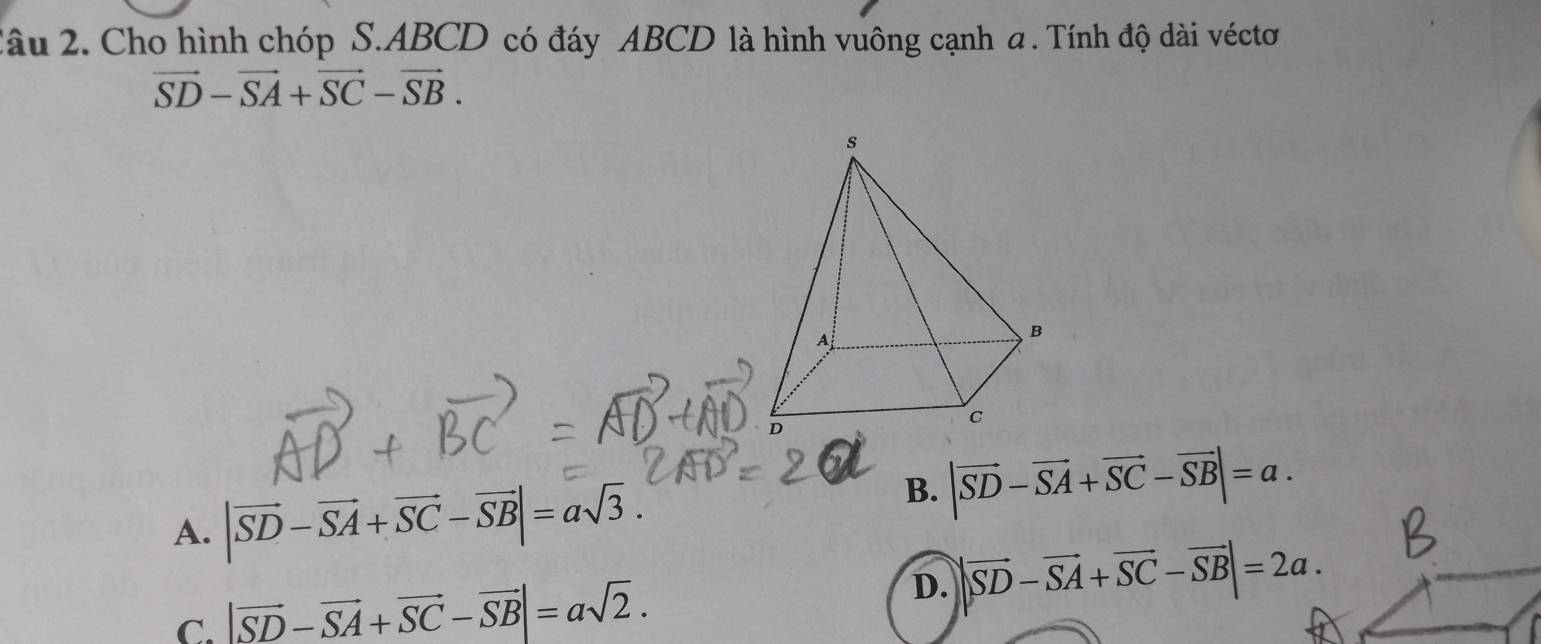 Câu 2. Cho hình chóp S.ABCD có đáy ABCD là hình vuông cạnh a. Tính độ dài véctơ
$\overrightarrow{SD}-\overrightarrow{SA}+\overrightarrow{SC}-\overrightarrow{SB}$.
S
A
B
D
C
$\overrightarrow{AD}+\overrightarrow{BC}=\overrightarrow{AD}+\overrightarrow{AD}$
$=2\overrightarrow{AD}=2a$
A. $|\overrightarrow{SD}-\overrightarrow{SA}+\overrightarrow{SC}-\overrightarrow{SB}|=a\sqrt{3}$.
B. $|\overrightarrow{SD}-\overrightarrow{SA}+\overrightarrow{SC}-\overrightarrow{SB}|=a$.
C. $|\overrightarrow{SD}-\overrightarrow{SA}+\overrightarrow{SC}-\overrightarrow{SB}|=a\sqrt{2}$.
D. $|\overrightarrow{SD}-\overrightarrow{SA}+\overrightarrow{SC}-\overrightarrow{SB}|=2a$.
B
A